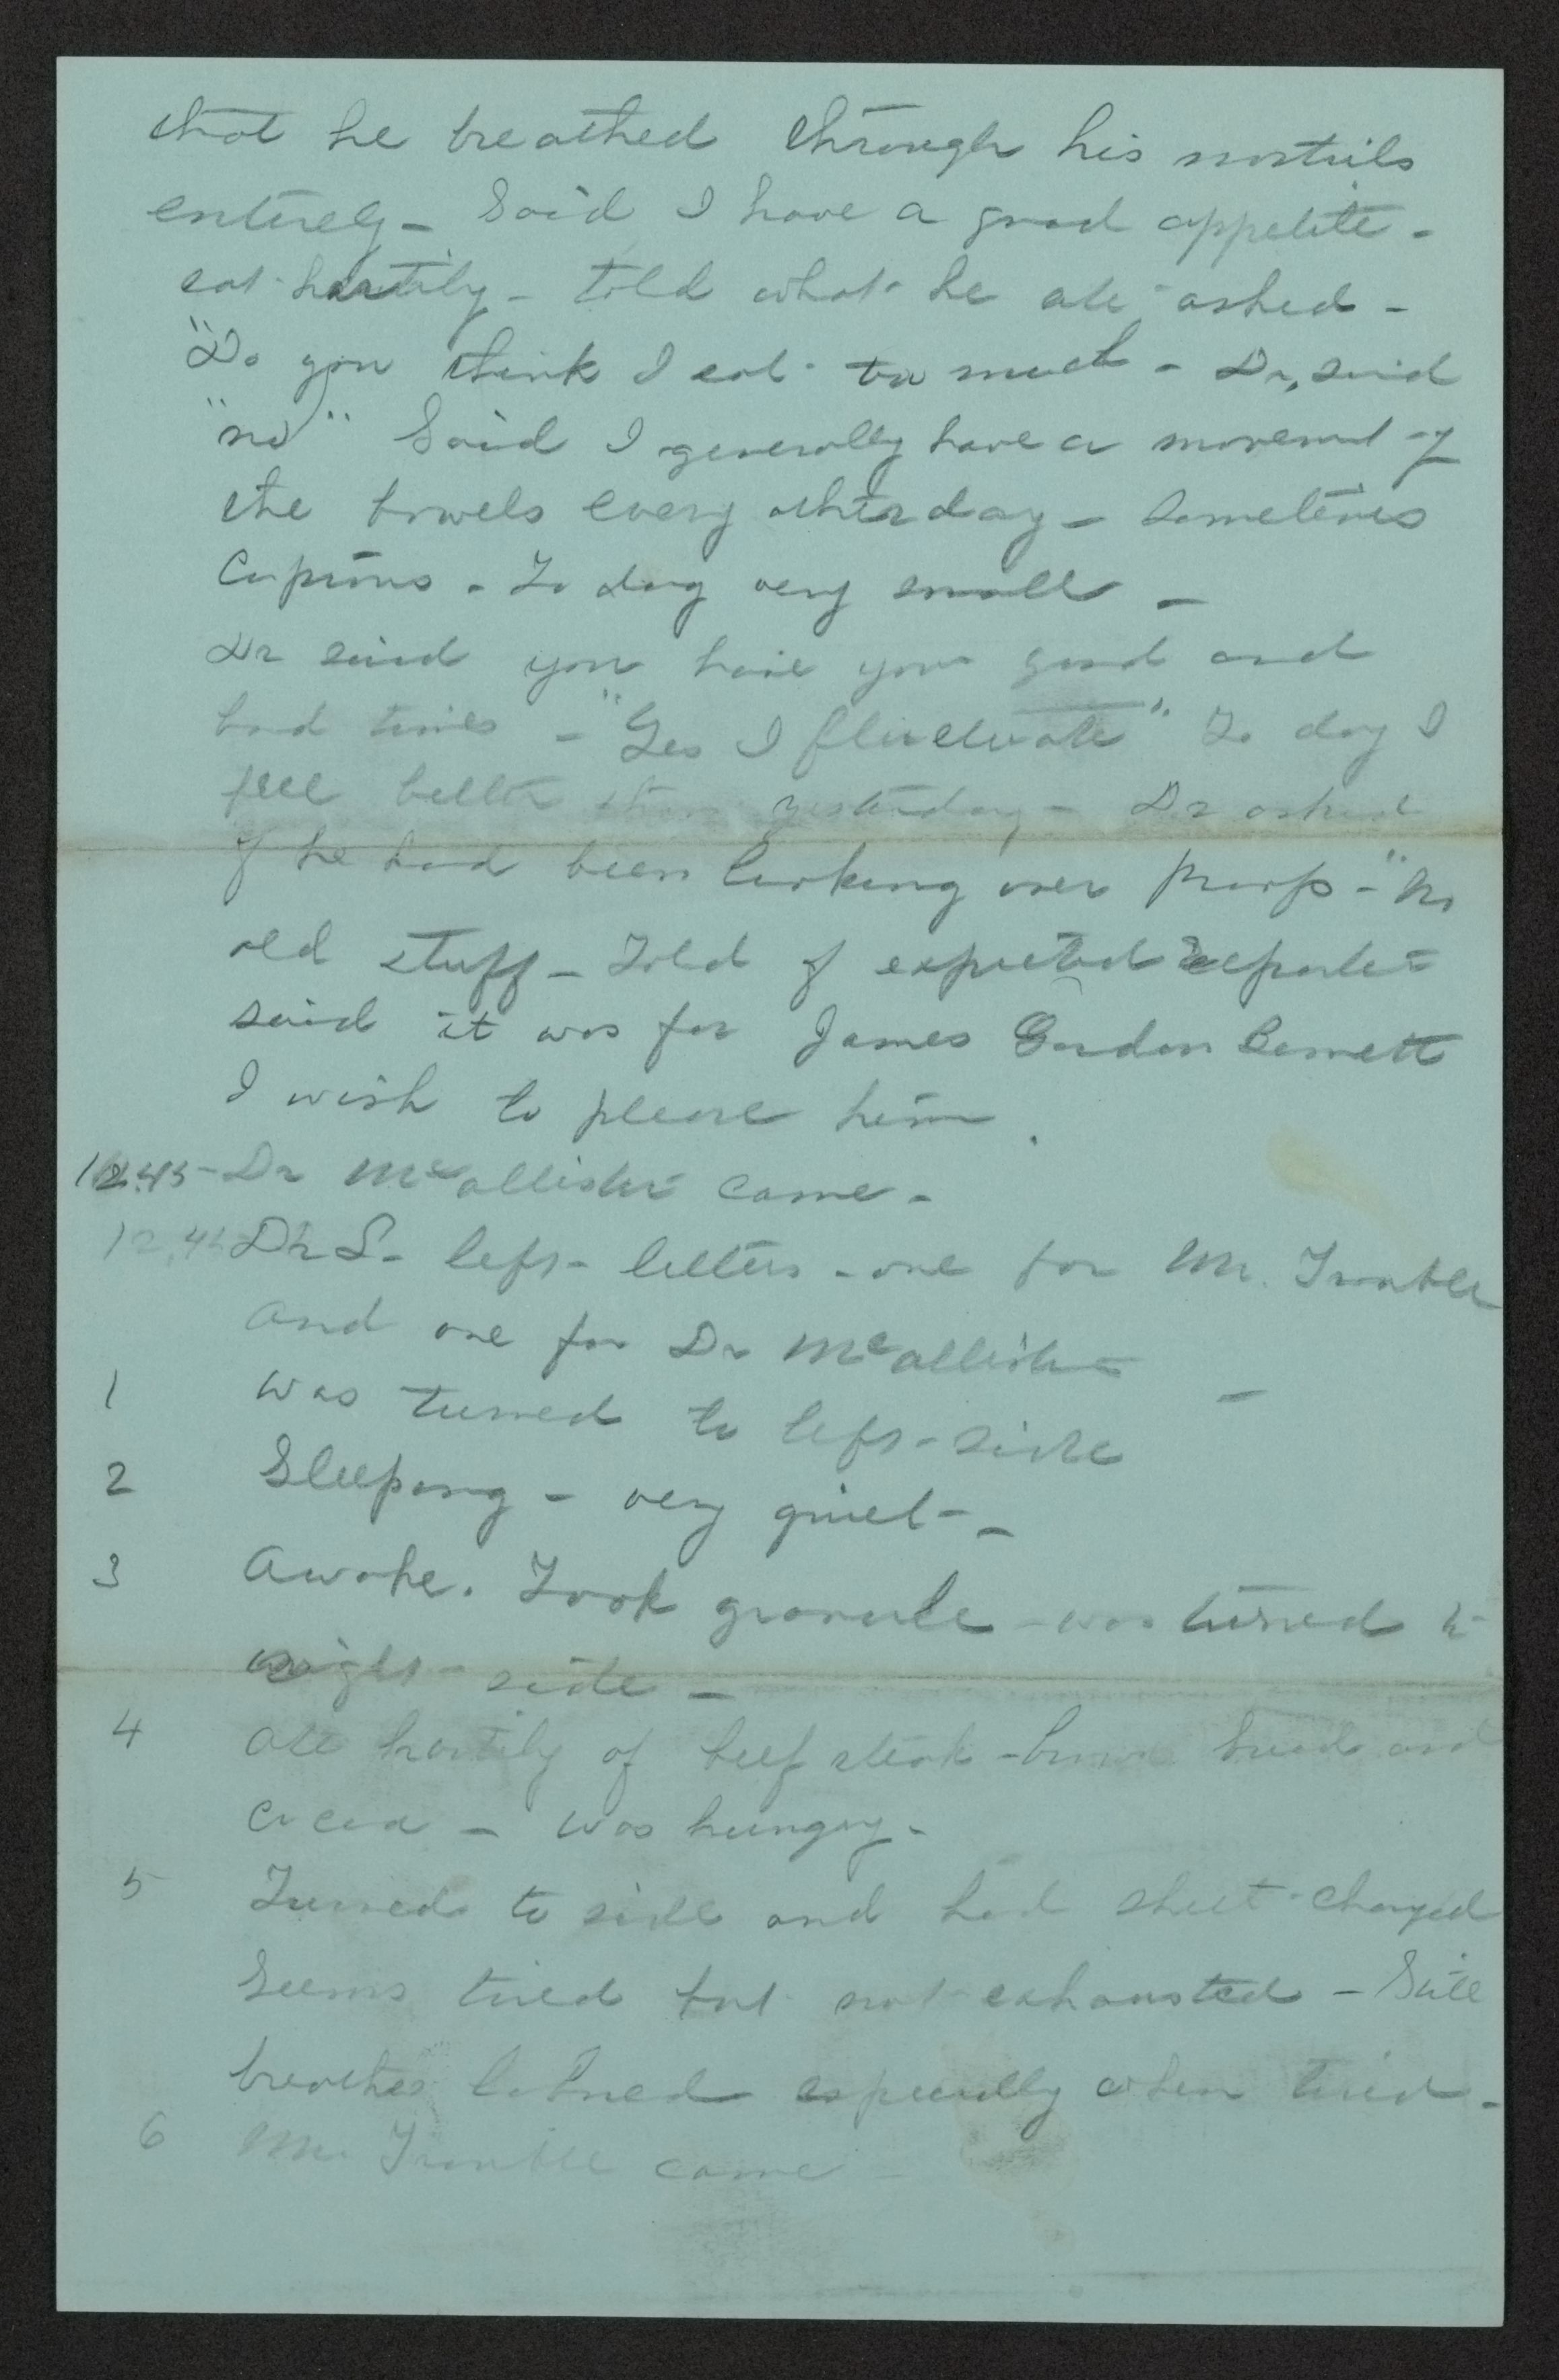 that he breathed through his nostrils
entirely - Said I have a good appetite -
eat hartily - told what he ate - asked -
"Do you think I eat too much - Dr, said
"no" Said I generally have a movement of
the bowels every other day - sometimes
Copious - To day very small -
Dr said you have your good and
bad times - "Yes I fluctuate" To day I
feel better than yesterday - Dr asked
if he had been looking over proofs - "No
old stuff - Told of expected
said it was for James Gordon Bennett
I wish to please him.
12.45 - Dr McAllister came -
12.45 Dr L - left - letters - one for Mr. Traubel
and one for Dr McAllister -
1 was turned to left - side
2 Sleeping - very quiet - -
3 Awoke. Took granule - was turned to
right - side -
4 Ate hartily of beef steak - brown bread and
cocoa - was hungry -
5 Turned to side and had sheet changed
Seems tired but not exhausted - Still
breathes labored especially when tired -
6 Mr. Traubel came -